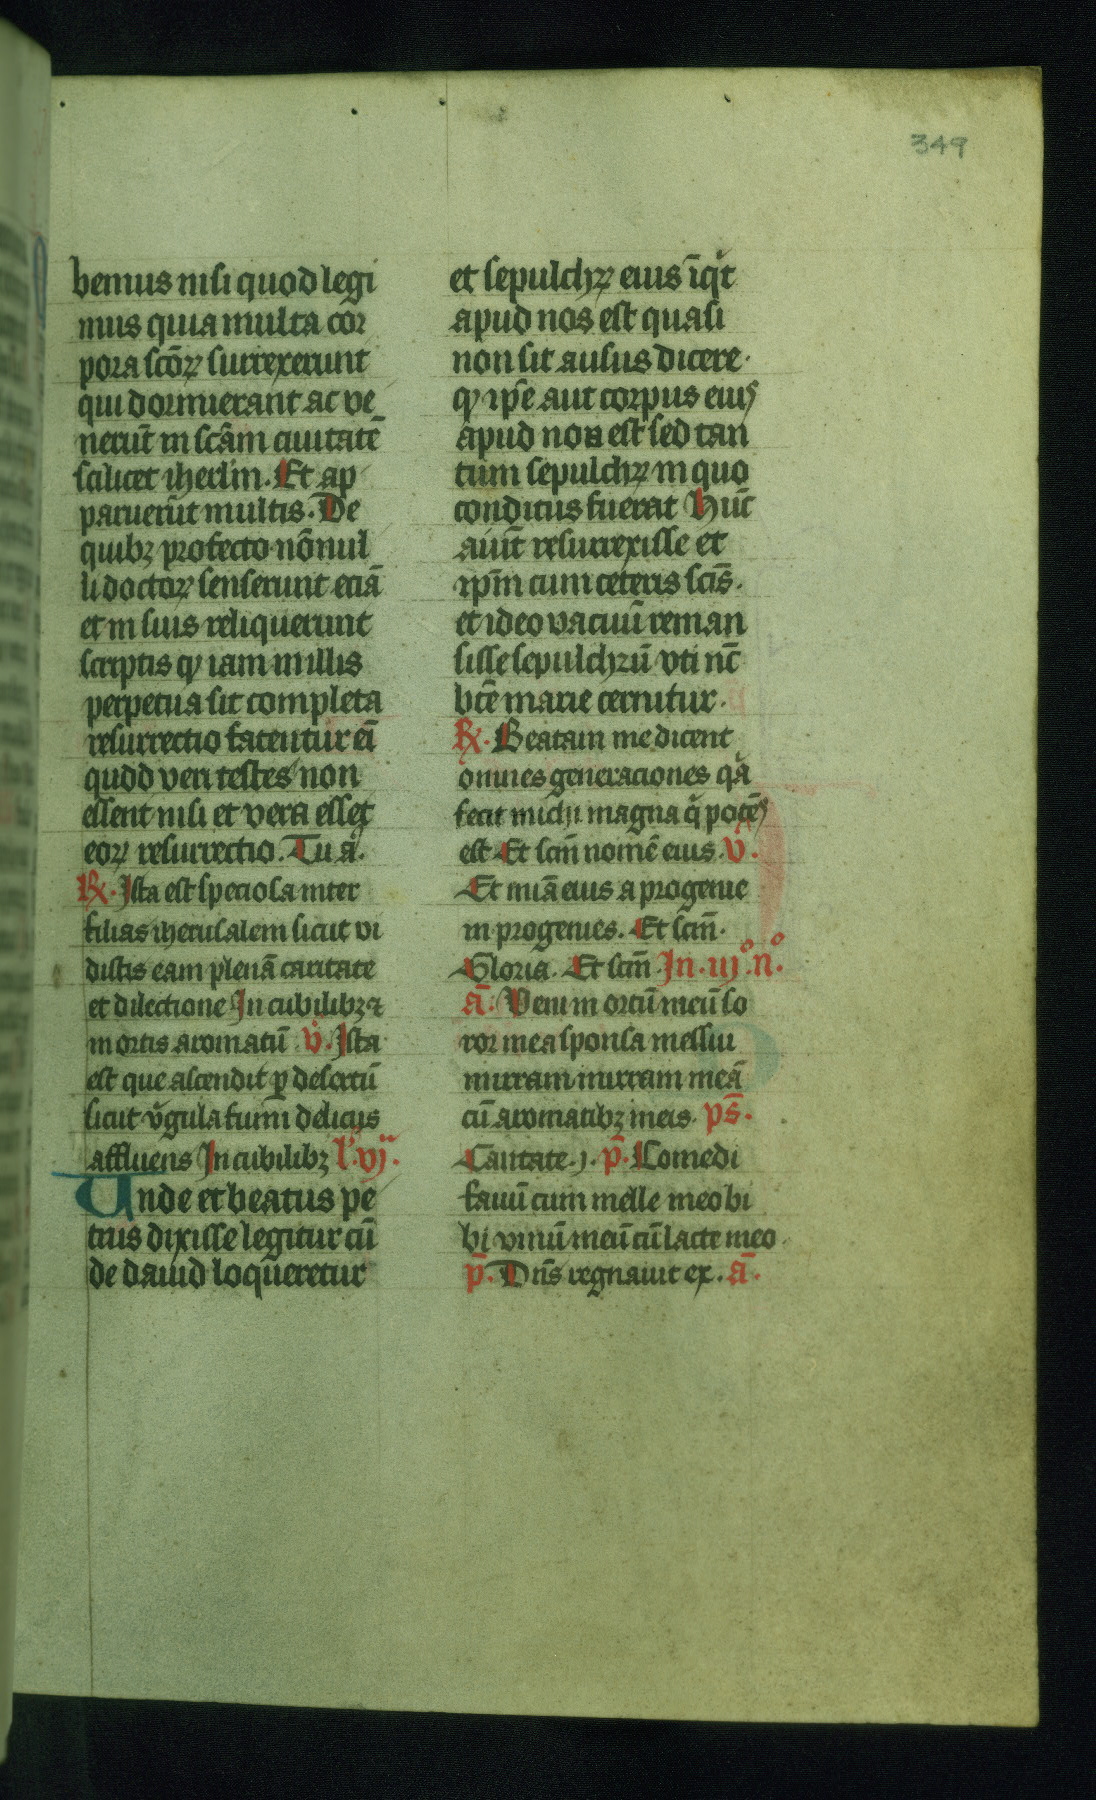 349
bemus nisi quod legi
mus quia multa cor
pora scōꝝ surrexerunt
qui dormierant ac ve
nerūt in scām ciuitatē
scilicet iherl'm. Et ap
paruerūt multis. De
quibꝫ profecto nōnul
li doctoꝝ senserunt eciā
et in suis reliquerunt
scriptis ꝙ iam in illis
perpetua sit completa
resurrectio fatentur eī
quod veri testes non
essent nisi et vera esset
eoꝝ resurrectio. Tu a.
℟. Ista est speciosa inter
filias iherusalem sicut vi
distis eam plenā caritate
et dilectione In cubilibꝫ ⁊
in ortis aromatū v̊. Ista
est que ascendit ꝑ desertū
sicut v̊gula fumi delicijs
affluens In cubilibꝫ l'. vjͣ.
Unde et beatus pe
trus dixisse legitur cū
de dauid loqueretur
et sepulchꝝ eius īq̇t
apud nos est quasi
non sit ausus dicere.
ꝙ ip̄e aut corpus eiuꝰ
apud nos est sed tan
tum sepulchꝝ in quo
conditus fuerat Hūc
aiūt resurrexisse et
ip̄m cum ceteris scīs.
et ideo vacuū reman
sisse sepulchrū vti nc̄
btē marie cernitur.
℟. Beatam me dicent
omnes generaciones qͣa
fecit michi magna q̇ potēs
est Et scm̄ nomē eius. v̊.
Et mīa eius a progenie
in progenies. Et scm̄.
Gloria. Et scm̄ In. iijº. nº.
ā. Veni in ortū meū so
ror mea sponsa messui
mirram mirram meā
cū aromatibꝫ meis. ps̄.
Cantate. j. p̄. Comedi
fauū cum melle meo bi
bi vinū meū cū lacte meo
p̄. Dn̄s regnauit ex. ā.